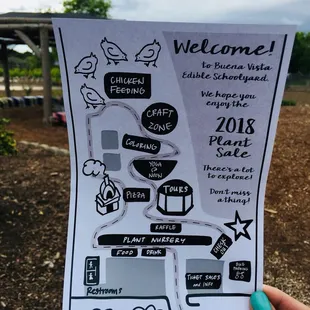 Welcome!
to Buena Vista
Edible Schoolyard.
We hope you
enjoy the
2018
Plant
Sale
There's a lot
to explore!
Don't miss
a thing!
CHICKEN
FEEDING
CRAFT
ZONE
COLORING
YOGA
PIZZA
TOURS
RAFFLE
PLANT NURSERY
FOOD
DRINK
CHECK
OUT
TICKET SALES
AND INFO
Restrooms